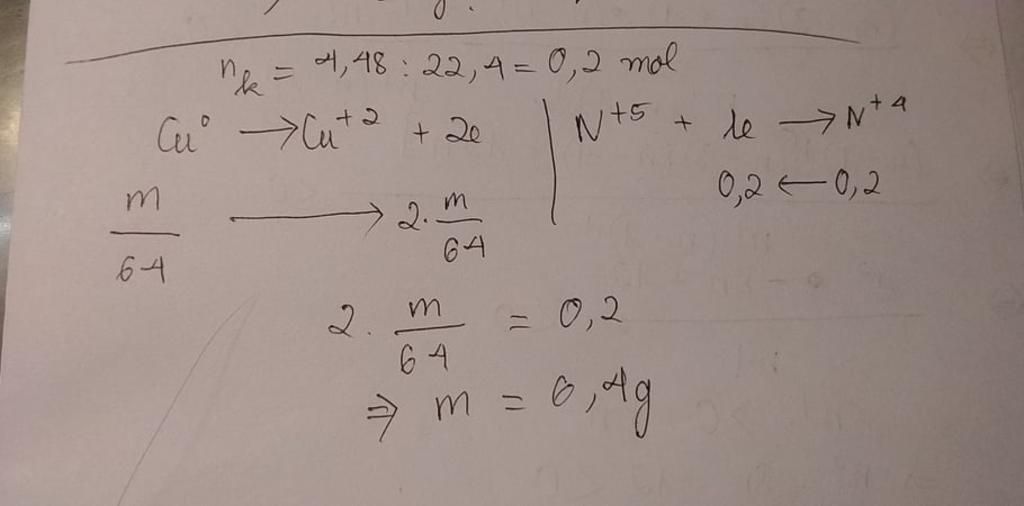 n_k = 4,48 : 22,4 = 0,2 mol
Cu⁰ → Cu⁺² + 2e | N⁺⁵ + 1e → N⁺⁴
0,2 ← 0,2
m/64 → 2. m/64
2. m/64 = 0,2
⇒ m = 6,4g